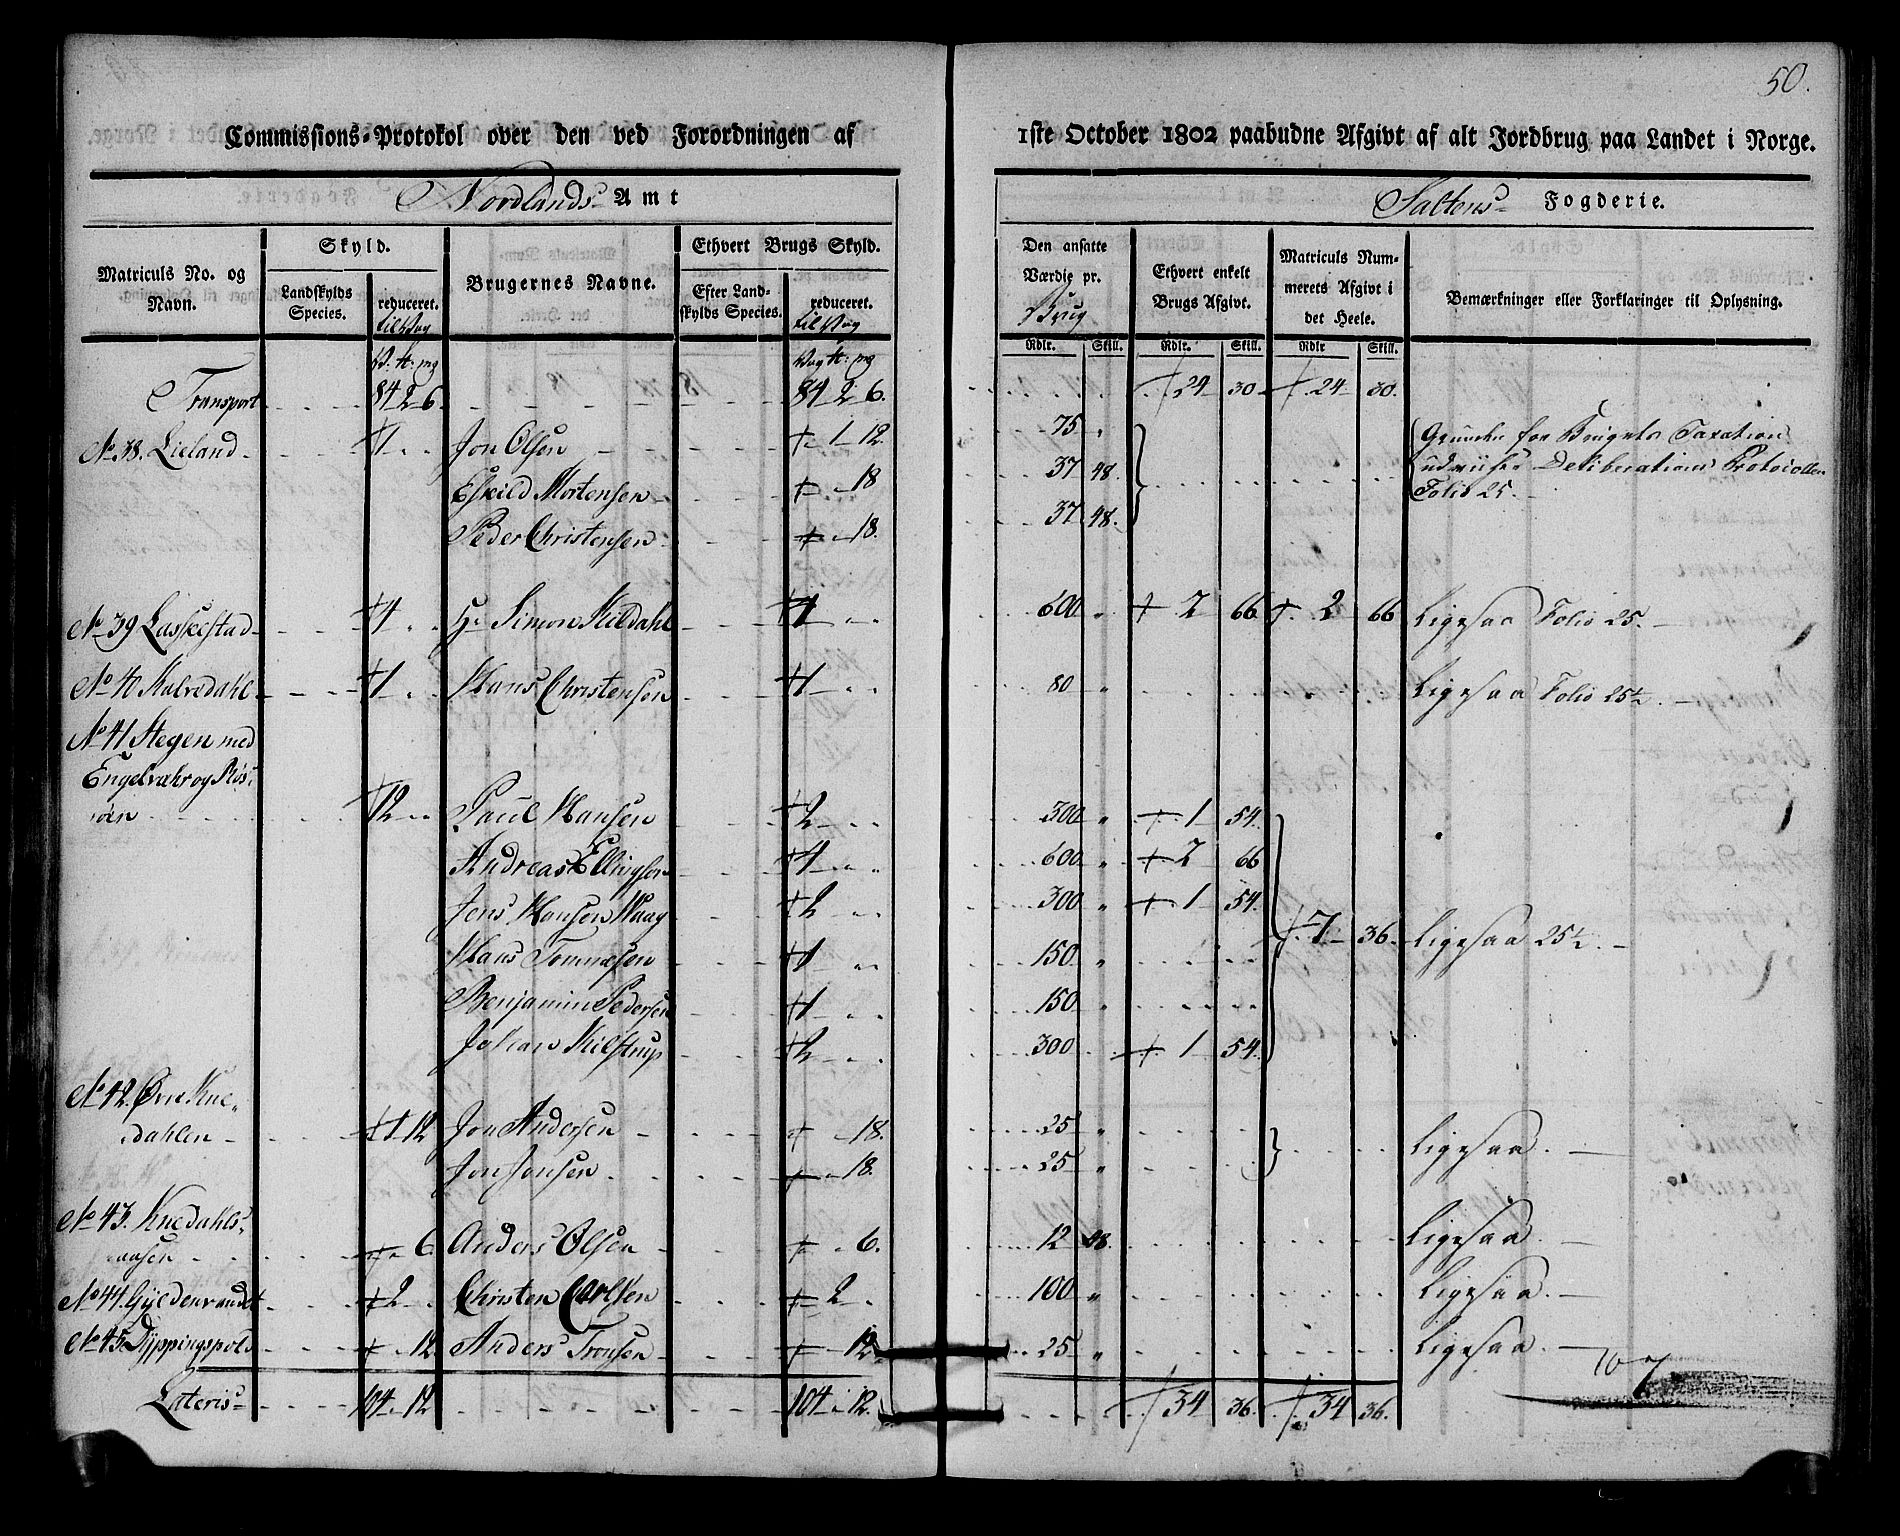 50.
Commissions-Protokol over den ved Forordningen af 1ste October 1802 paabudne Afgivt af alt Jordbrug paa Landet i Norge.
Nordlands Amt Saltens Fogderie.
Matriculs No. og Navn. Skyld. Brugernes Navne. Ethvert Brugs Skyld. Den ansatte Værdie pr. Brug Ethvert enkelt Brugs Afgivt. Matriculs Nummerets Afgivt i det Heele. Bemærkninger eller Forklaringer til Oplysning.
Landskylds Species. reduceret. til Vog Efter Landskylds Species. reduceret. til Vog
Rdlr. Skill. Rdlr. Skill. Rdlr Skill.
V. ℔: mg Vog ℔: mg
Transport 84 2 6. 84 2 6. 24 30 24 30.
No 38. Lieland 1 Jon Olsen 1 12. 75 Grunden for Brugets Taxation
Eskild Mortensen 18 37 48. udviises Deliberations Protocollen
Peder Christensen 18. 37 48. Folio 25.
No 39 Laskestad 4 Hr Simon Kildahl 4 600 2 66 2 66 Ligesaa Folio 25.
No 40 Kalvedahl 1 Hans Christensen 1 80 Ligesaa Folio 25½.
No 41 Stegen med
Engelvæhr og Røs-
øen 12 Paul Hansen 2 300 1 54.
Andreas Ellingsen 4 600 2 66
Jens Hansen Waag 2 300 1 54.
Hans Tomæsen 1 150 7 36. Ligesaa 25½.
Benjamin Pedersen 1 150
Johan Kilstrup 2 300 1 54.
No 42. Øvre Kne-
dahlen 1 12 Jon Andersen 18. 25 Ligesaa.
Jon Jonsen 18. 25
No 43. Knedahls-
aasen 6. Anders Olsen 6. 12 48. Ligesaa.
No 44. Gyldenvandet 2 Christen Carlsen 2 100 Ligesaa.
No 45. Dyppingspold 12. Anders Tronsen 12. 25 Ligesaa.
Lateris 104 12 104 12. 34 36. 34 36.